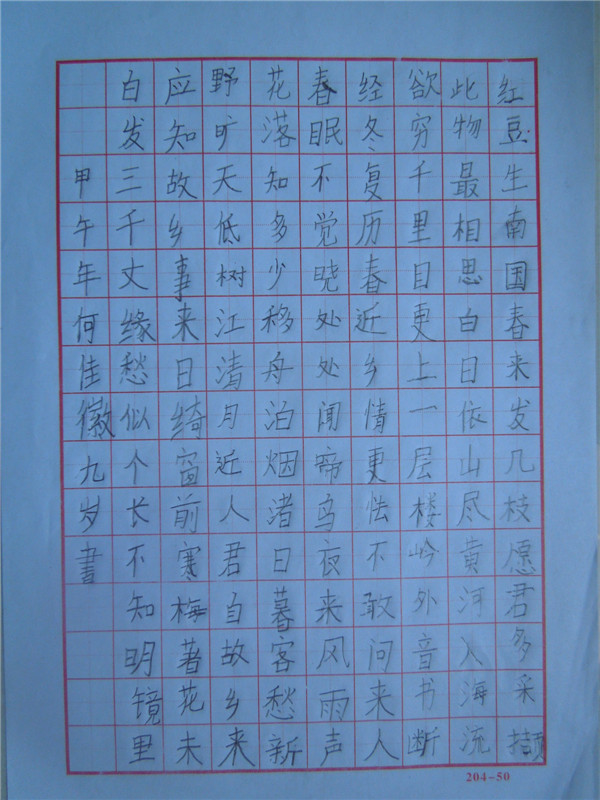 红豆生南国春来发几枝愿君多采撷
此物最相思白日依山尽黄河入海流
欲穷千里目更上一层楼岭外音书断
经冬复历春近乡情更怯不敢问来人
春眠不觉晓处处闻啼鸟夜来风雨声
花落知多少移舟泊烟渚日暮客愁新
野旷天低树江清月近人君自故乡来
应知故乡事来日绮窗前寒梅著花未
白发三千丈缘愁似个长不知明镜里
甲午年何佳徽九岁書
204-50